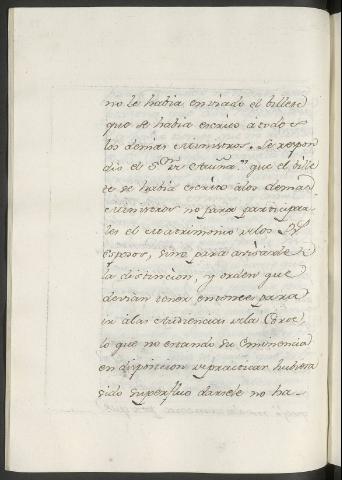 no le habia enviado el billete
que se habia escrito á todos
los demas Ministros. Se respon
dió el S.or que el bille
te se habia escrito a los demas
Ministros no para participar
les el Matrimonio de los
esposos, sino para avisarles
la distincion, y orden que
devian tener entonces para
ir a las Audiencias de la Corte,
lo que no estando Su Eminencia
en disposicion de practicar hubiera
sido superfluo darsele no ha-